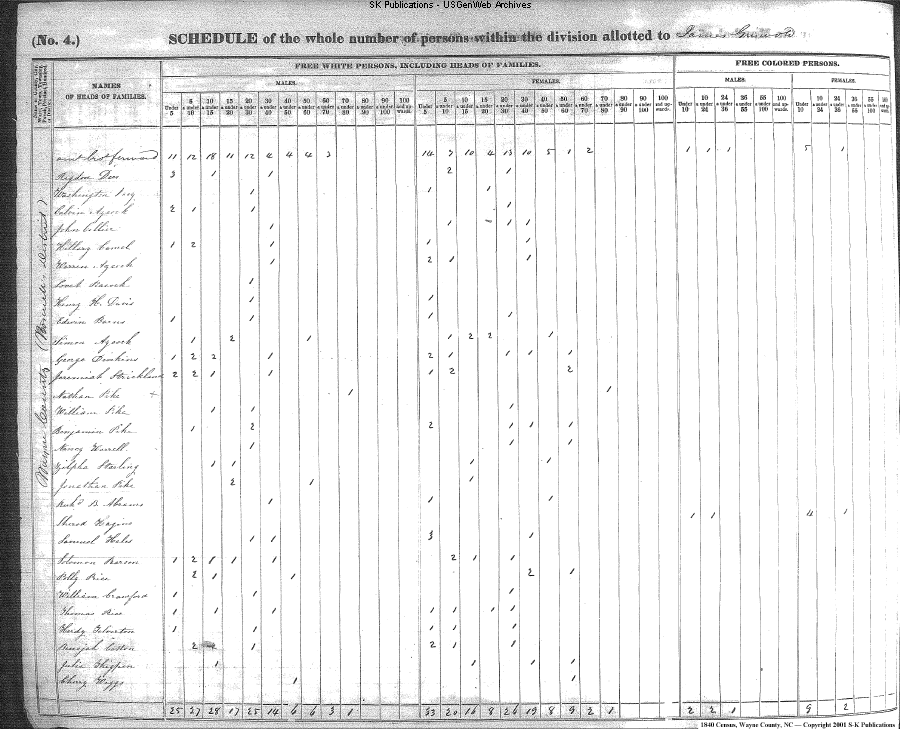 SK Publications - USGenWeb Archives
(No. 4.) SCHEDULE of the whole number of persons within the division allotted to James
FREE WHITE PERSONS, INCLUDING HEADS OF FAMILIES. FREE COLORED PERSONS.
NAMES OF HEADS OF FAMILIES. MALES. FEMALES. MALES. FEMALES.
Under 5 5 & under 10 10 & under 15 15 & under 20 20 & under 30 30 & under 40 40 & under 50 50 & under 60 60 & under 70 70 & under 80 80 & under 90 90 & under 100 100 and upwards. Under 5 5 & under 10 10 & under 15 15 & under 20 20 & under 30 30 & under 40 40 & under 50 50 & under 60 60 & under 70 70 & under 80 80 & under 90 90 & under 100 100 and upwards. Under 10 10 & under 24 24 & under 36 36 & under 55 55 & under 100 100 and upwards. Under 10 10 & under 24 24 & under 36 36 & under 55 55 & under 100
Wayne County
forward 11 12 18 11 12 4 4 4 3 14 7 10 4 13 10 5 1 2 1 1 1 5 1
3 1 1 2 1
Washington 1 1 1
Calvin Aycock 2 1 1 1
John Collier 1 1 1 1
Hillary 1 2 1 1 1
Warren Aycock 1 2 1 1
1
Henry H. Davis 1 1
Edwin Barns 1 1 1 1
Simon Aycock 1 2 1 1 2 2 1
George Dinkins 1 2 2 1 2 1 1 1 1
Jeremiah Strickland 2 2 1 1 1 2 2
Nathan Pike + 1 1
William Pike 1 1 1
Benjamin Pike 1 2 2 1 1 1
Nancy Worrell 1 1 1
Zilpha Starling 1 1 1 1
Jonathan Pike 2 1 1
B. Abrams 1 1 1
1 1 4 1
Samuel Hales 1 1 3 1
Solomon Pearson 1 2 1 1 1 2 1 1
Polly Rice 2 1 1 2 1
William Crawford 1 1 1
Thomas Rice 1 1 1 1 1 1 1
Hardy Yelverton 1 1 1 1 1
Benajah Caston 2 1 2 1 1
Julia Thigpen 1 1 1 1
1 1
25 27 28 17 25 14 6 6 3 1 33 20 16 8 26 19 8 9 2 1 2 2 1 9 2
1840 Census, Wayne County, NC — Copyright 2001 S-K Publications